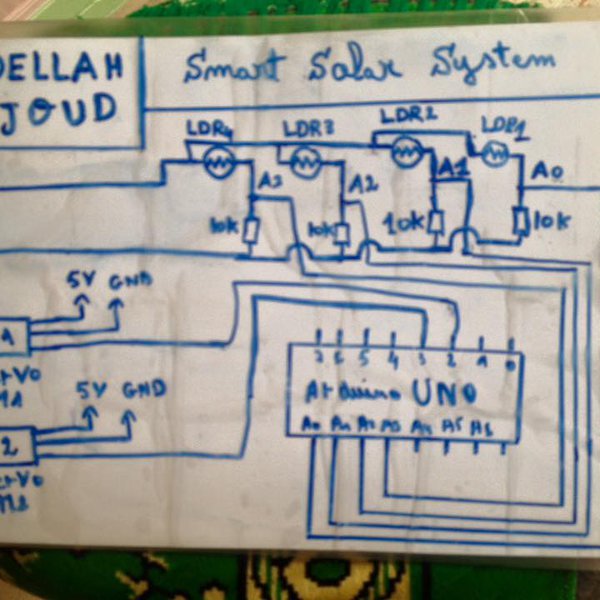 DELLAH
JOUD
Smart Solar System
LDR4 LDR3 LDR2 LDR1
A3 A2 A1 A0
10k 10k 10k 10k
5V GND
1
5V GND
2
7 6 5 4 3 2 1 0
Arduino UNO
A0 A1 A2 A3 A4 A5